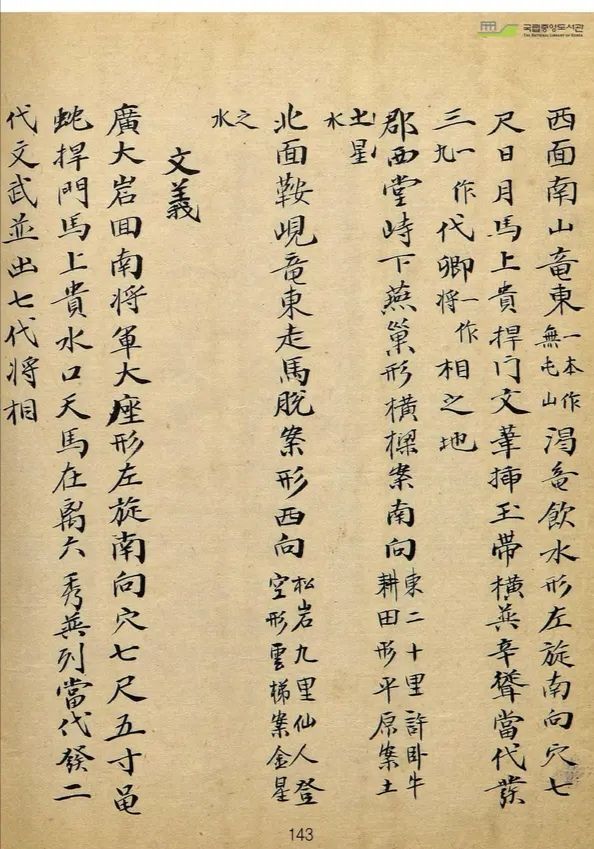 국립중앙도서관
THE NATIONAL LIBRARY OF KOREA
西面南山竜東一本作無屯山渴竜飮水形左旋南向穴七
尺日月馬上貴捍门文華揷玉帶橫英辛聳當代發
三一作九代卿一作將相之地
郡西堂峙下燕巢形橫樑案南向東二十里許卧牛耕田形平原案土
土星水
北面鞍峴竜東走馬脫案形西向松岩九里仙人登空形雲梯案金星
之水
文義
廣大岩回南将軍大座形左旋南向穴七尺五寸黾
蛇捍門馬上貴水口天馬在离六秀並列當代發二
代文武並出七代将相
143